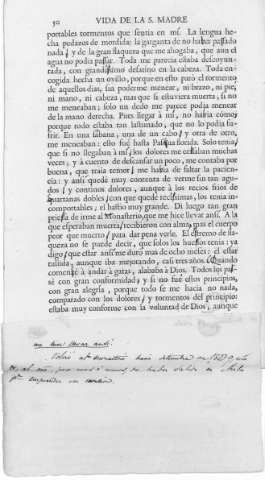 50 VIDA DE LA S. MADRE
portables tormentos que sentia en mì. La lengua he-
cha pedazos de mordida: la garganta de no haber passado
nada, y de la gran flaqueza que me ahogaba, que aun el
agua no podia passar. Toda me parecia estaba descoyun-
tada, con grandissimo desatino en la cabeza. Toda en-
cogida hecha un ovillo, porque en esto parò el tormento
de aquellos dias, sin poderme menear, ni brazo, ni pie,
ni mano, ni cabeza, mas que si estuviera muerta, si no
me meneaban; solo un dedo me parece podia menear
de la mano derecha. Pues llegar à mì, no habia còmo;
porque todo estaba tan lastimado, que no lo podia su-
frir. En una sabana, una de un cabo, y otra de otro,
me meneaban: esto fuè hasta Pasqua florida. Solo tenia,
que si no llegaban à mì, los dolores me cessaban muchas
veces; y à cuento de descansar un poco, me contaba por
buena, que traía temor, me habia de faltar la pacien-
cia: y ansi quedè muy contenta de verme sin tan agu-
dos, y continos dolores, aunque à los recios frios de
quartanas dobles, con que quedè recissimas, los tenia in-
comportables; el hastío muy grande. Di luego tan gran
priessa de irme al Monasterio, que me hice llevar ansi. A la
que esperaban muerta, recibieron con alma; mas el cuerpo
peor que muerto, para dar pena verle. El estremo de fla-
queza no se puede decir, que solos los huessos tenia: ya
digo, que estar ansi me durò mas de ocho meses: el estar
tullida, aunque iba mejorando, casi tres años. Quando
comencè à andar à gatas, alababa à Dios. Todos los pas-
sè con gran conformidad; y si no fuè estos principios,
con gran alegria, porque todo se me hacia no nada,
comparado con los dolores, y tormentos del principio:
estaba muy conforme con la voluntad de Dios, aunque
me hice llevar ansi: